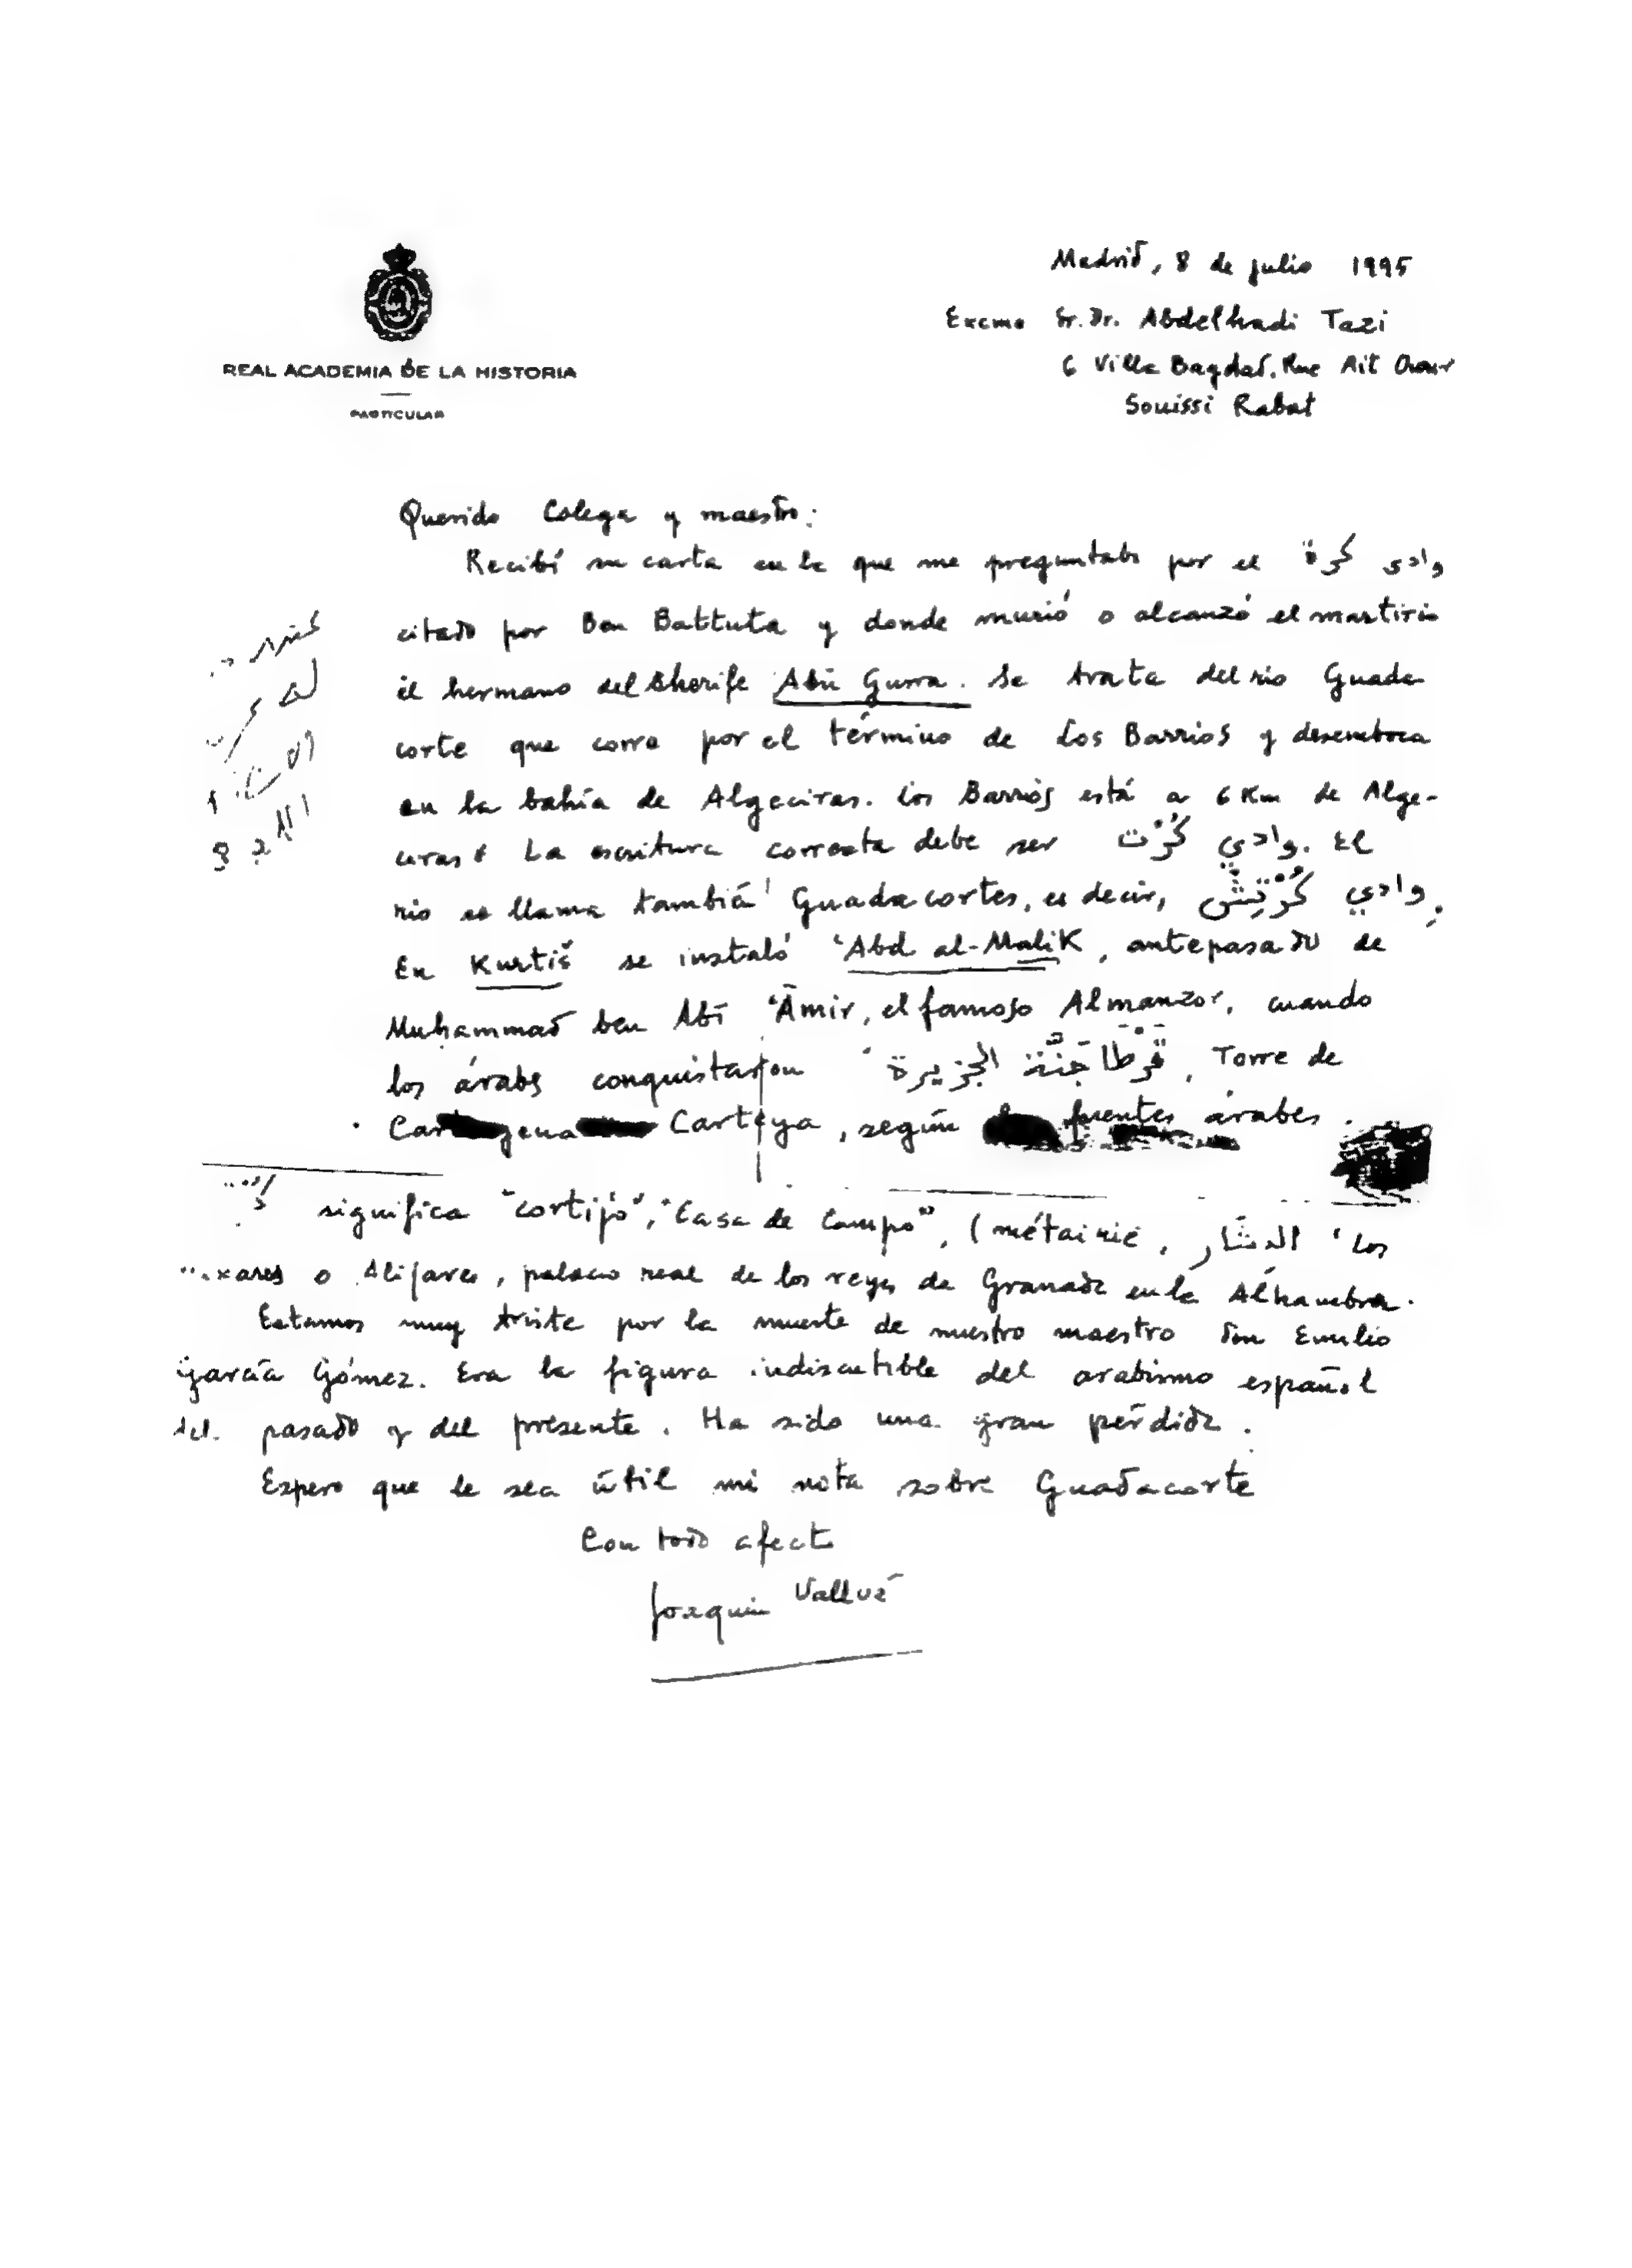 REAL ACADEMIA DE LA HISTORIA
PARTICULAR
Madrid, 8 de julio 1995
Excmo Sr. Dr. Abdelhadi Tazi
6 Villa Bagdad. Rue Ait Ourir
Souissi Rabat
Querido Colega y maestro:
Recibí su carta en la que me preguntaba por el وادى كرة
citado por Ben Battuta y donde murió o alcanzó el martirio
el hermano del Sherife Abū Gurra. Se trata del rio Guada
corte que corre por el término de Los Barrios y desemboca
en la bahía de Algeciras. Los Barrios está a 6 Km de Alge-
ciras. La escritura correcta debe ser وادي كُرْت. El
rio se llama también Guadacortes, es decir, وادي كُرْتِش.
En Kurtiš se instaló ʿAbd al-Malik, antepasado de
Muḥammad ben Abī ʿĀmir, el famoso Almanzor, cuando
los árabes conquistaron قَرْطَاجَنَّة الجزيرة, Torre de
Cartagena Carteya, según fuentes árabes.
significa "cortijo", "Casa de Campo", (métairie, الدشَار، Los
o Alijares, palacio real de los reyes de Granada en la Alhambra.
Estamos muy triste por la muerte de nuestro maestro don Emilio
García Gómez. Era la figura indiscutible del arabismo español
del pasado y del presente. Ha sido una gran pérdida.
Espero que le sea útil mi nota sobre Guadacorte
Con todo afecto
Joaquín Vallvé